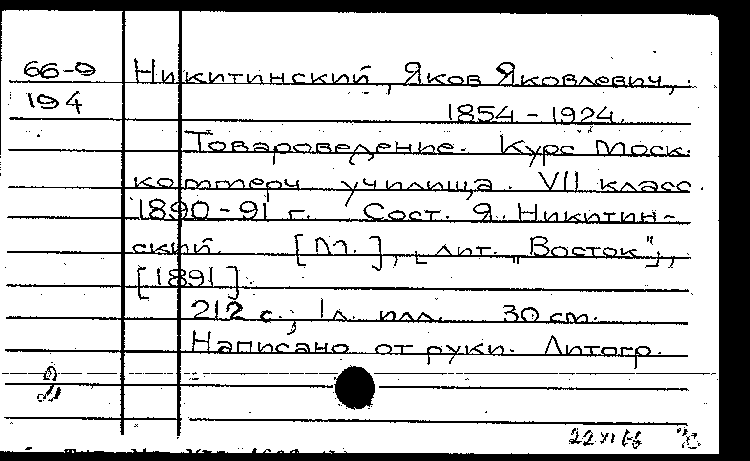 66-9 Никитинский, Яков Яковлевич,
194 1854-1924.
Товароведение. Курс Моск.
коммерч училища. VII класс
1890-91 г. Сост. Я. Никитин-
ский. [М.], [лит. „Восток"],
[1891].
212 с.; 1 л. илл. 30 см.
Написано от руки. Литогр.
22 XI 66